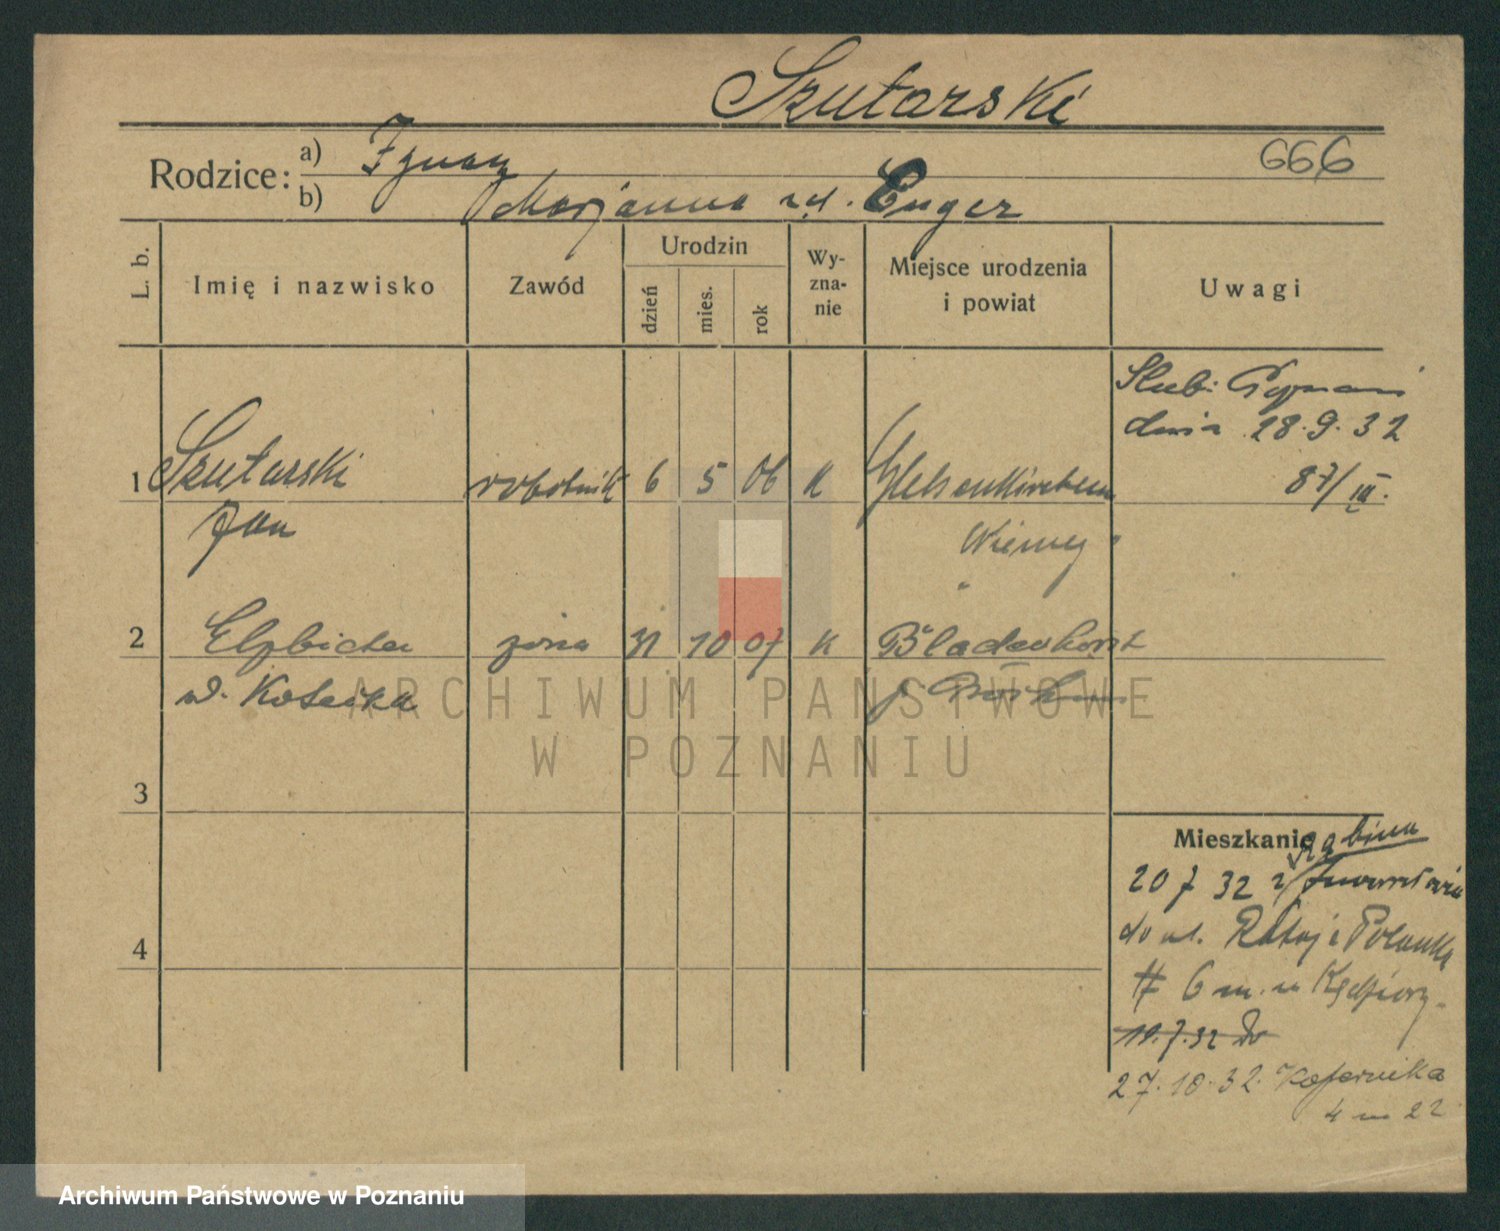 Szutarski
666
Rodzice: a) Ignacy
b) Marjanna zd. Enger
L. b.
Imię i nazwisko
Zawód
Urodzin
dzień
mies.
rok
Wy-
zna-
nie
Miejsce urodzenia
i powiat
Uwagi
Ślub: Poznań
dnia 28.9.32
87/III.
1 Szutarski robotnik 6 5 06 K
Jan
Niemcy
2 Elżbieta żona 31 10 07 K Bladenhorst
3
Mieszkanie
20 7 32 z
do ul. Rataje Polanka
# 6 m. u Kędziory
19.7.32 do
4
27.10.32. Kopernika
4 m 22
ARCHIWUM PAŃSTWOWE
W POZNANIU
Archiwum Państwowe w Poznaniu